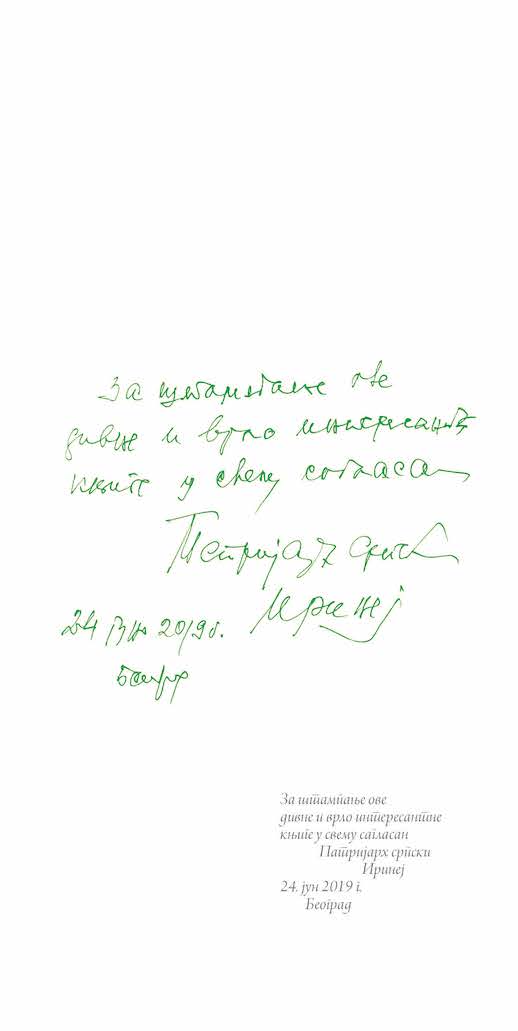 За штампање ове
дивне и врло интересантне
књиге у свему сагласан
Патријарх српски
Иринеј
24 јун 2019 г.
Београд
За штампање ове
дивне и врло интересантне
књиге у свему сагласан
Патријарх српски
Иринеј
24. јун 2019 г.
Београд